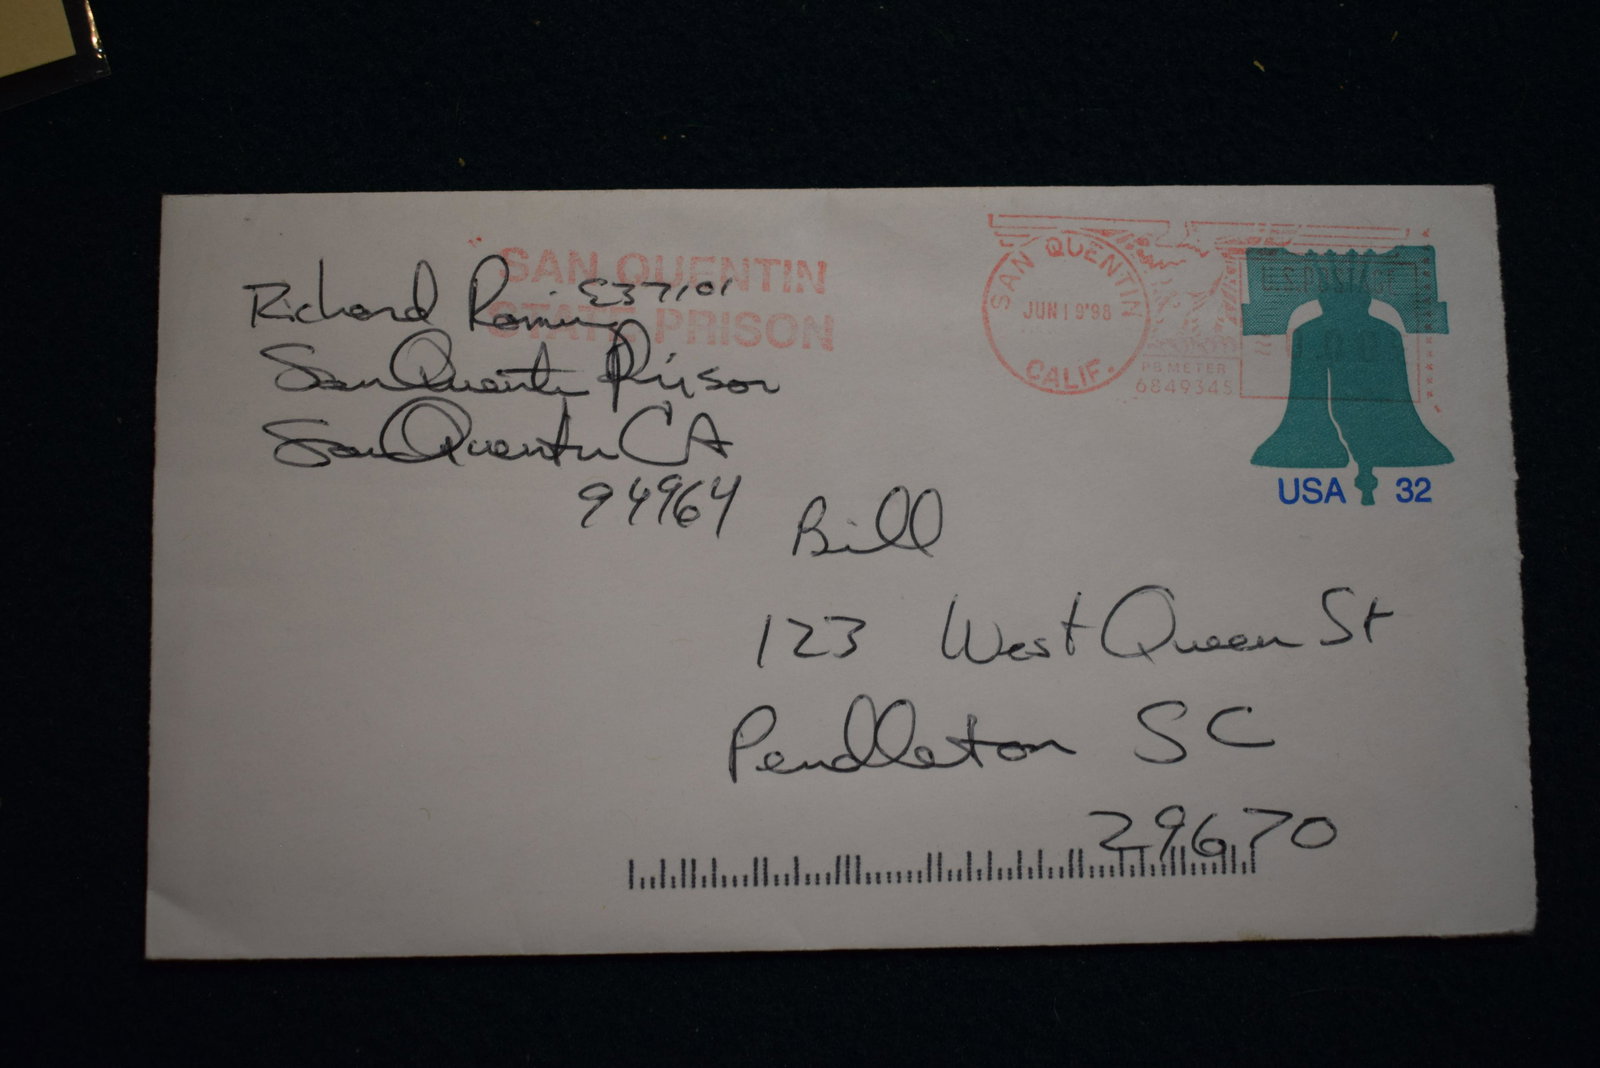 SAN QUENTIN
STATE PRISON
Richard Ramirez E37101
San Quentin Prison
San Quentin CA
94964
SAN QUENTIN
JUN 19'98
CALIF.
PB METER
6849345
U.S. POSTAGE
USA 32
Bill
123 West Queen St
Pendleton SC
29670